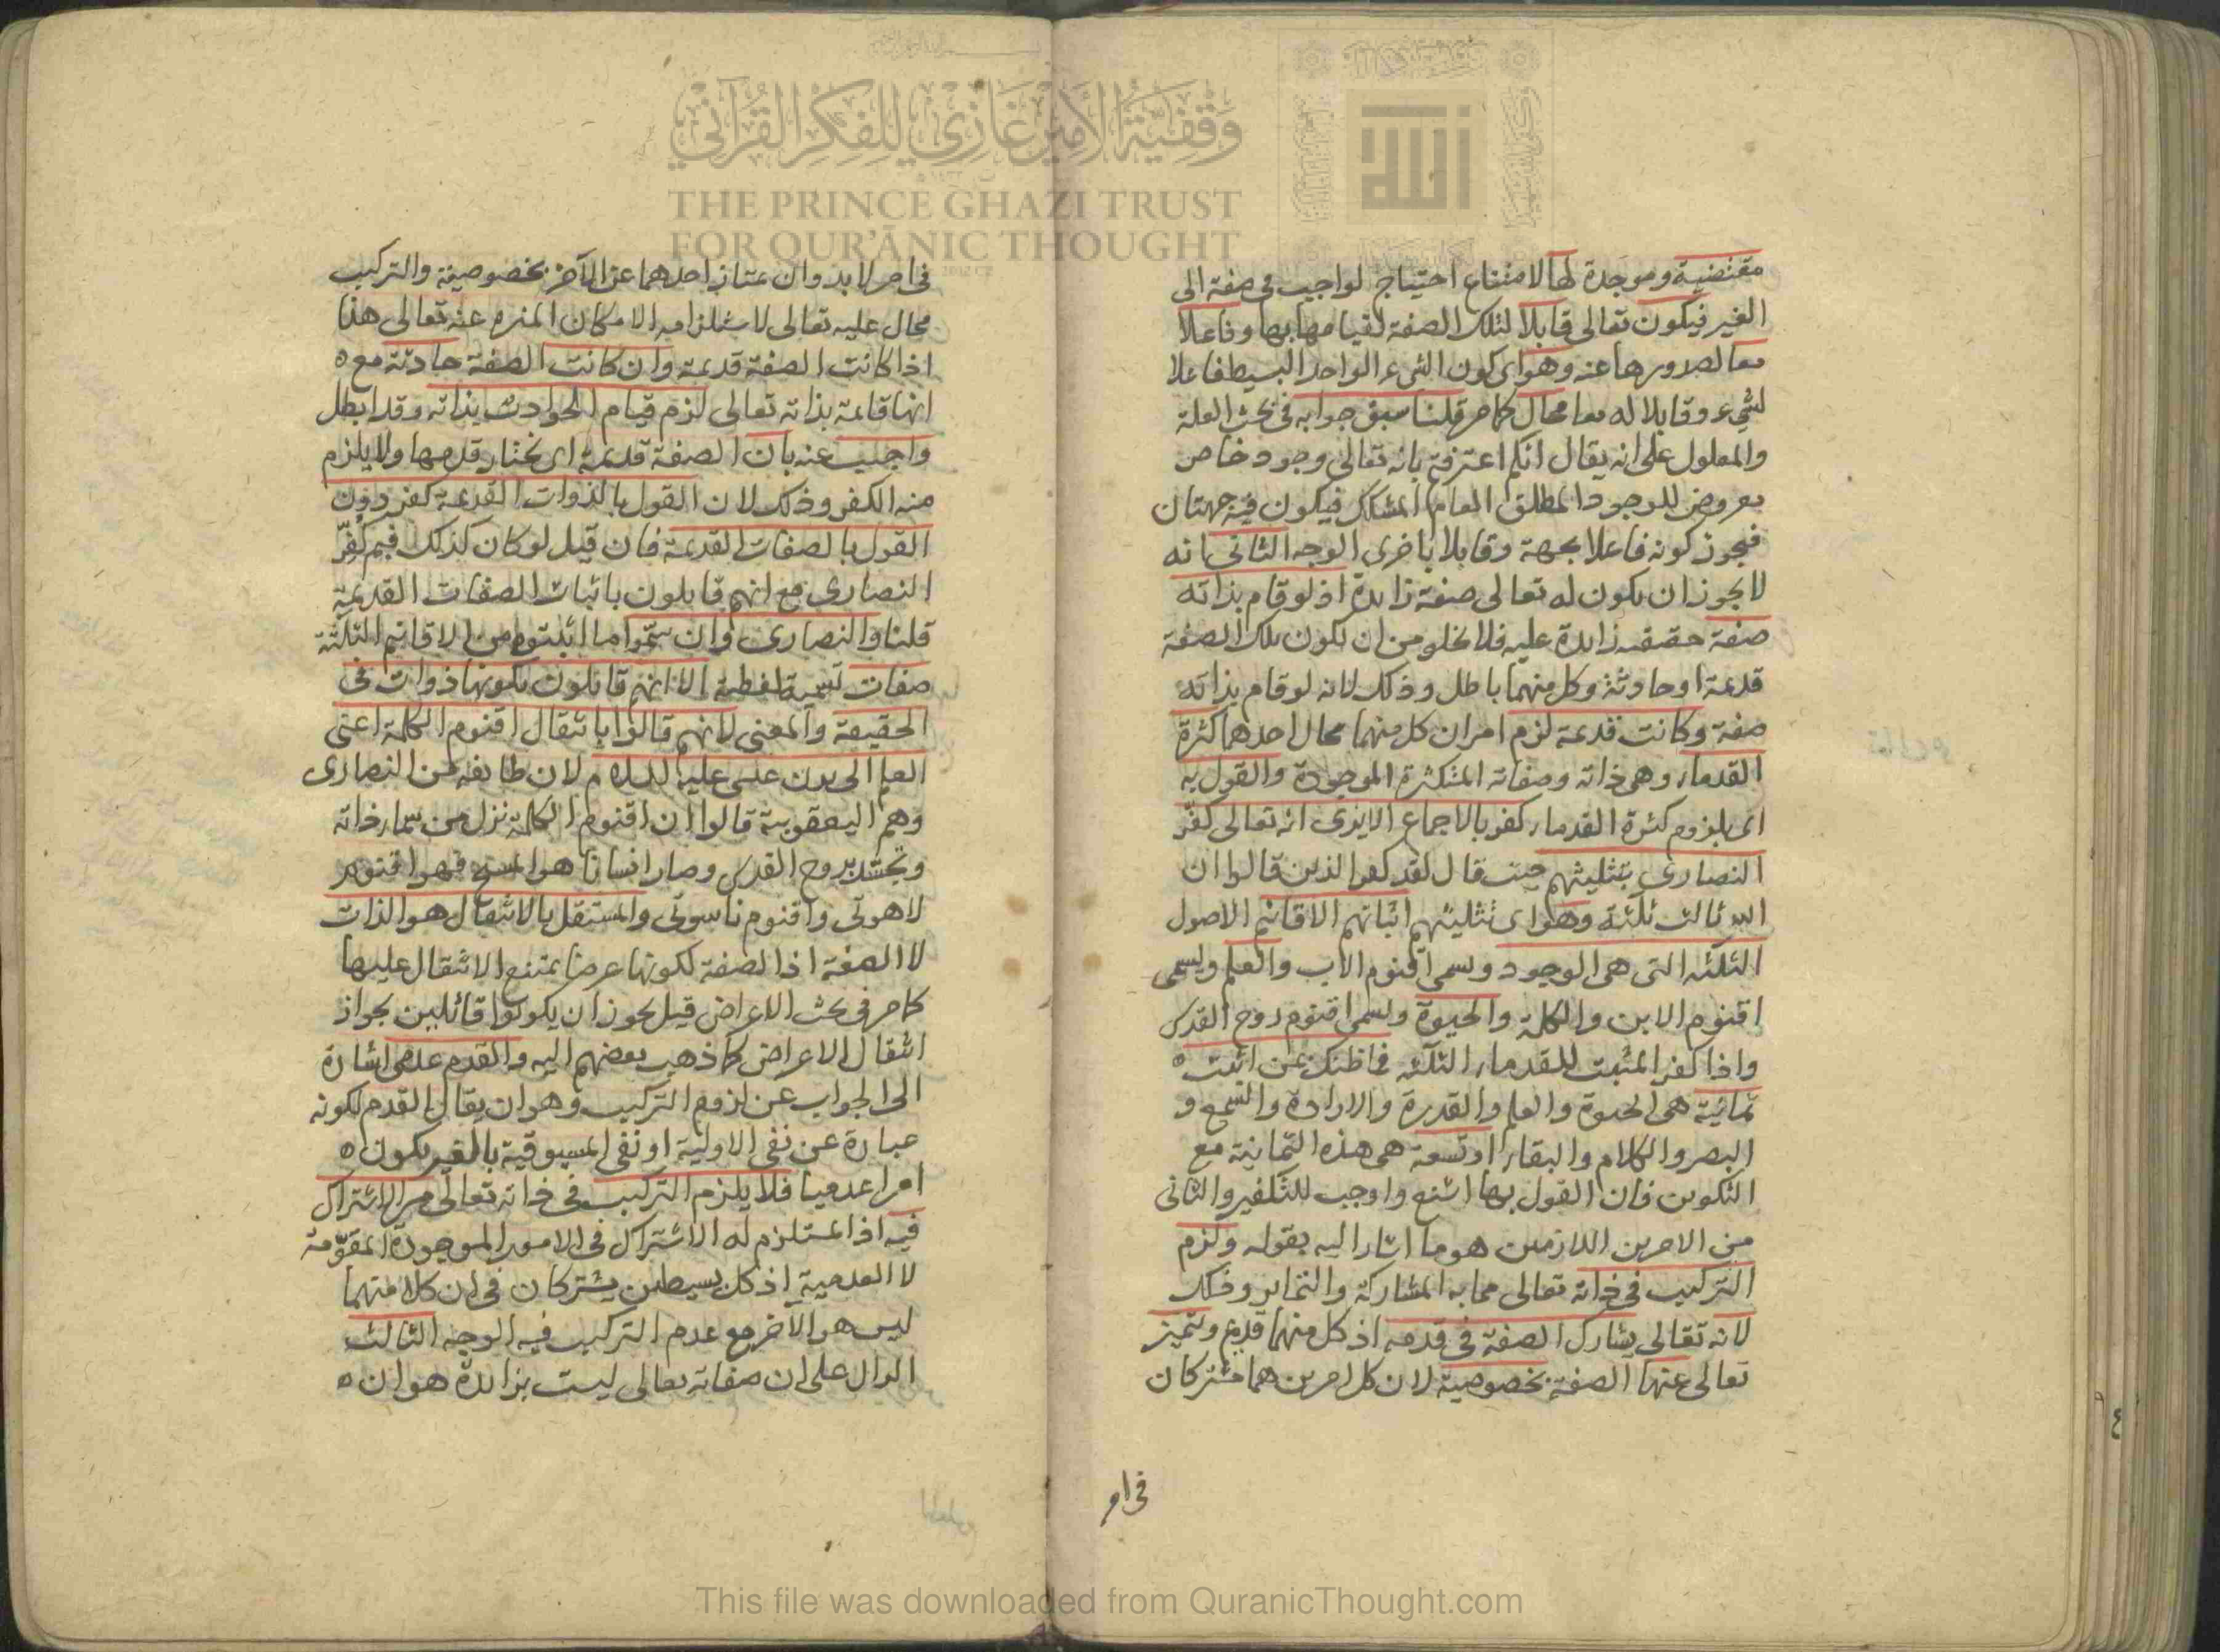 وقفية الأمير غازي للفكر القرآني
THE PRINCE GHAZI TRUST
FOR QUR'ĀNIC THOUGHT
الله
مقتضية وموجدة لها لامتناع احتياج الواجب في صفة الى
الغير فيكون تعالى قابلا لتلك الصفة لقيامها بها وفاعلا
معا لصدورها عنه وهو اى كون الشىء الواحد البسيط فاعلا
لشىء وقابلا له معا محال كما مر قلنا سبق جوابه في بحث العلة
والمعلول على انه يقال انكم اعترفتم بانه تعالى وجود خاص
معروض للوجود المطلق العام المشكك فيكون فيه جهتان
فيجوز كونه فاعلا بجهة وقابلا باخرى الوجه الثانى انه
لا يجوز ان يكون له تعالى صفة زايدة اذ لو قام بذاته
صفة حقيقيه زايدة عليه فلا يخلو من ان تكون تلك الصفة
قديمة او حادثة وكل منهما باطل وذلك لانه لو قام بذاته
صفة وكانت قديمة لزم امران كل منهما محال احدهما كثرة
القدماء وهى ذاته وصفاته المتكثرة الموجودة والقول به
اى بلزوم كثرة القدماء كفر بالاجماع الا يرى انه تعالى كفّر
النصارى بتثليثهم حيث قال لقد كفر الذين قالوا ان
الله ثالث ثلثة وهو اى تثليثهم اثباتهم الاقانيم الاصول
الثلثه التى هى الوجود ويسمى اقنوم الاب والعلم ويسمى
اقنوم الابن والكلمة والحيوة ويسمى اقنوم روح القدس
واذا كفر المثبت للقدماء الثلثه فما ظنك بمن اثبت
ثمانية هى الحيوة والعلم والقدرة والارادة والسمع و
البصر والكلام والبقاء او تسعة هى هذه الثمانية مع
التكوين فان القول بها اشنع واوجب للتكفير والثانى
من الامرين اللازمين هو ما اشار اليه بقوله ولزم
التركيب في ذاته تعالى مما به المشاركة والتمايز وذلك
لانه تعالى يشارك الصفة في قدمه اذ كل منهما قديم ويتميز
تعالى عنها الصفة بخصوصية لان كل امرين هما مشتركان
في امر
في امر لا بد وان يمتاز احدهما عن الآخر بخصوصية والتركيب
محال عليه تعالى لاستلزامه الامكان المنزه عنه تعالى هذا
اذا كانت الصفة قديمة وان كانت الصفة حادثة مع
انها قائمة بذاته تعالى لزم قيام الحوادث بذاته وقد ابطل
واجيب عنه بان الصفة قديمة اى نختار قدمها ولا يلزم
منه الكفر وذلك لان القول بالذوات القديمة كفر دون
القول بالصفات القديمة فان قيل لو كان كذلك فبم كفّر
النصارى مع انهم قايلون باثبات الصفات القديمة
قلنا والنصارى وان سمّوا ما اثبتوه من الاقانيم الثلثة
صفات تسمية لفظية الا انهم قائلون بكونها ذوات فى
الحقيقة والمعنى لانهم قالوا بانتقال اقنوم الكلمة اعنى
العلم الى بدن عيسى عليه السلام لان طايفه من النصارى
وهم اليعقوبية قالوا ان اقنوم الكلمة نزل من سماء ذاته
وتجسّد بروح القدس وصار انسانا هو المسيح فهو اقنوم
لاهوتى واقنوم ناسوتى والمستقل بالانتقال هو الذات
لا الصفة اذ الصفة لكونها عرضا يمتنع الانتقال عليها
كما مر فى بحث الاعراض قيل يجوز ان يكونوا قائلين بجواز
انتقال الاعراض كما ذهب بعضهم اليه والقدم عدمى اشارة
الى الجواب عن لزوم التركيب وهو ان يقال القدم لكونه
عبارة عن نفى الاولية او نفى المسبوقية بالغير يكون
امرا عدميا فلا يلزم التركيب فى ذاته تعالى من الاشتراك
فيه اذ المستلزم له الاشتراك فى الامور الموجودة المقوّمة
لا العدمية اذ كل بسيطين يشتركان فى ان كلا منهما
ليس هو الآخر مع عدم التركيب فيه الوجه الثالث
الدال على ان صفاته تعالى ليست بزايدة هو ان
This file was downloaded from QuranicThought.com